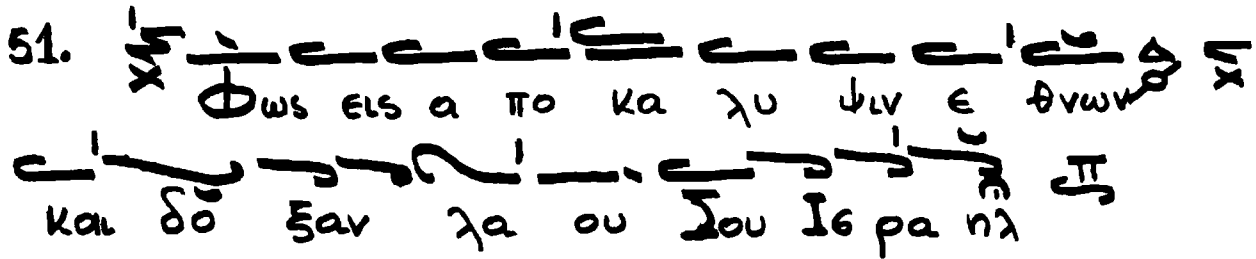 51. Φως εις α πο κα λυ ψιν ε θνων
και δο ξαν λα ου Σου Ισ ρα ηλ